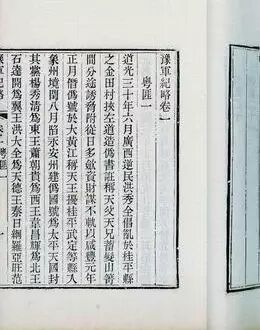 豫軍紀略卷一
粵匪一
道光三十年六月廣西逆民洪秀全倡亂於桂平縣
之金田村挾左道造僞書詿稱天父天兄蓄髮山箐
間分途誘脅附從日多歛資財謀不軌以咸豐元年
正月僭僞號於大黃江稱天王擾桂平武定等縣入
象州境閏八月陷永安州建僞國號爲太平天國封
其黨楊秀清爲東王蕭朝貴爲西王韋昌輝爲北王
石達開爲翼王洪大全爲天德王秦日綱羅亞旺范
豫軍紀略 卷一 粵匪 一